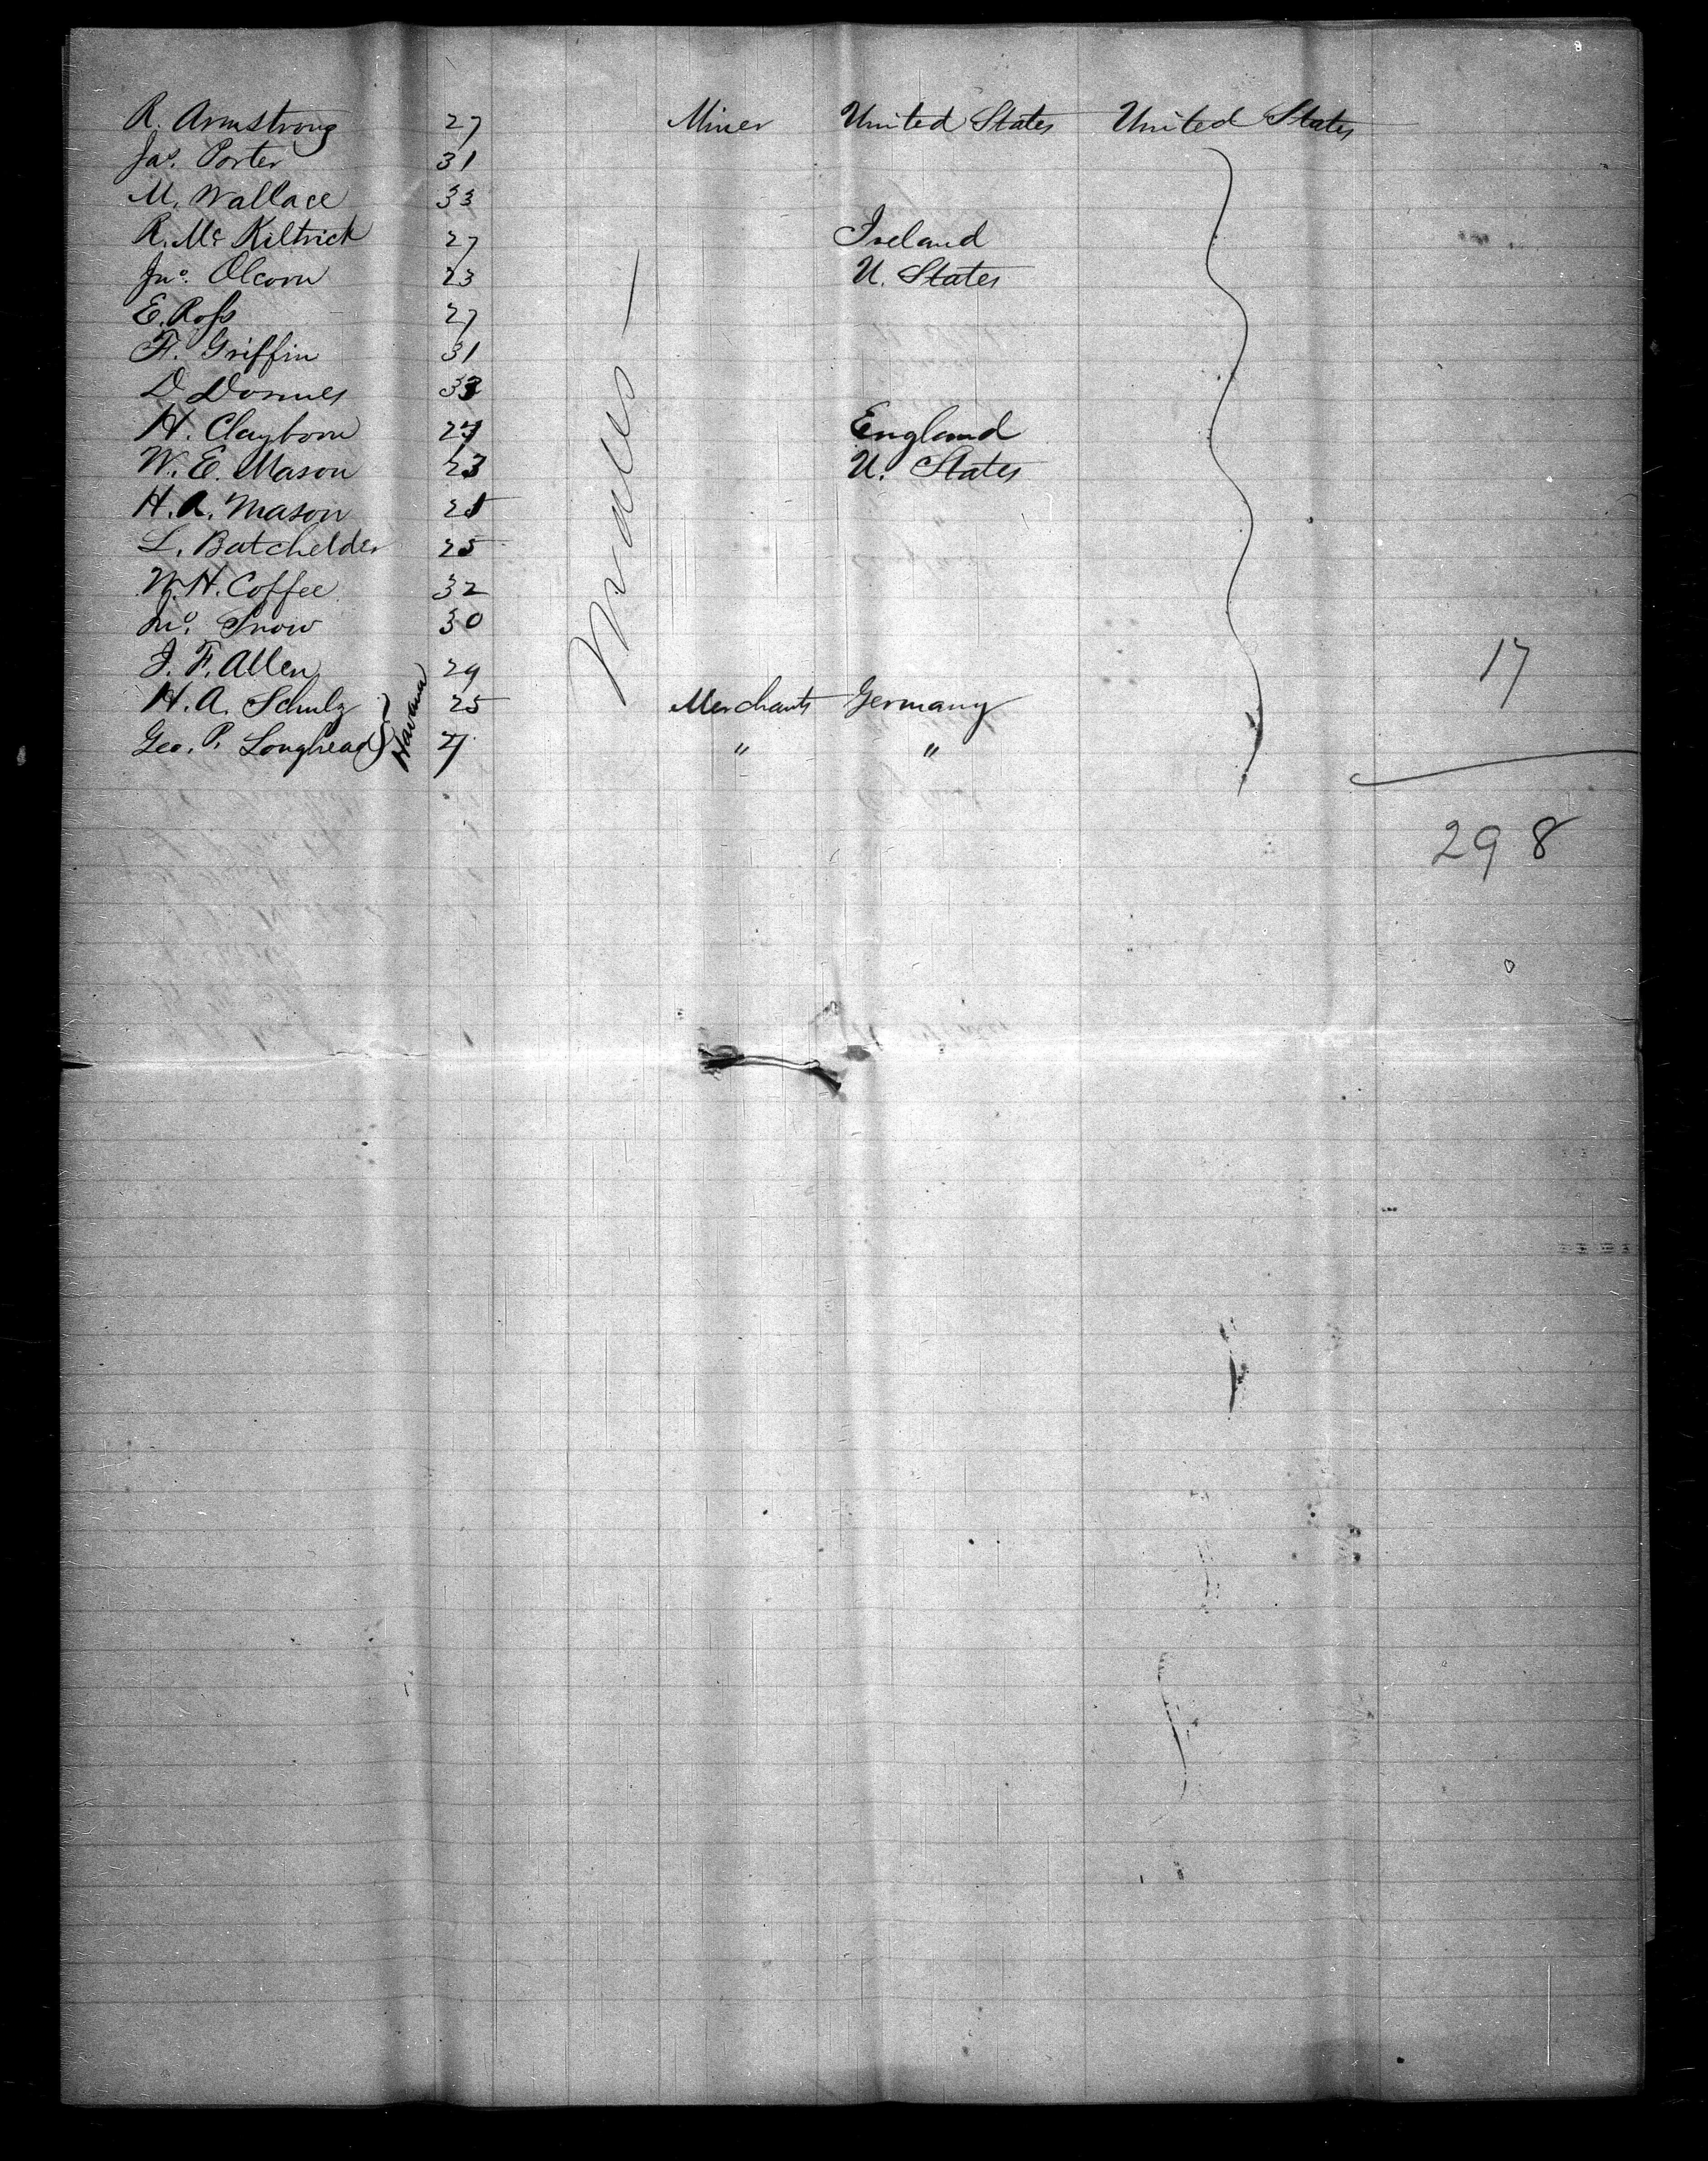 R. Armstrong 27 Miner United States United States
Jas. Porter 31
M. Wallace 33
R. Mc Kiltrick 27 Ireland
Jno. Olcorn 23 U. States
E. Ross 27
F. Griffin 31
D. 33
H. Clayborn England
W. E. Mason 23 U. States
H. A. Mason
L. Batchelder 25
W. H. Coffee 32
Jno. Snow 30
J. F. Allen 29
H. A. Schulz 25 Merchants Germany
Geo. P. Longhead 27 " "
Havana
Males
17
298